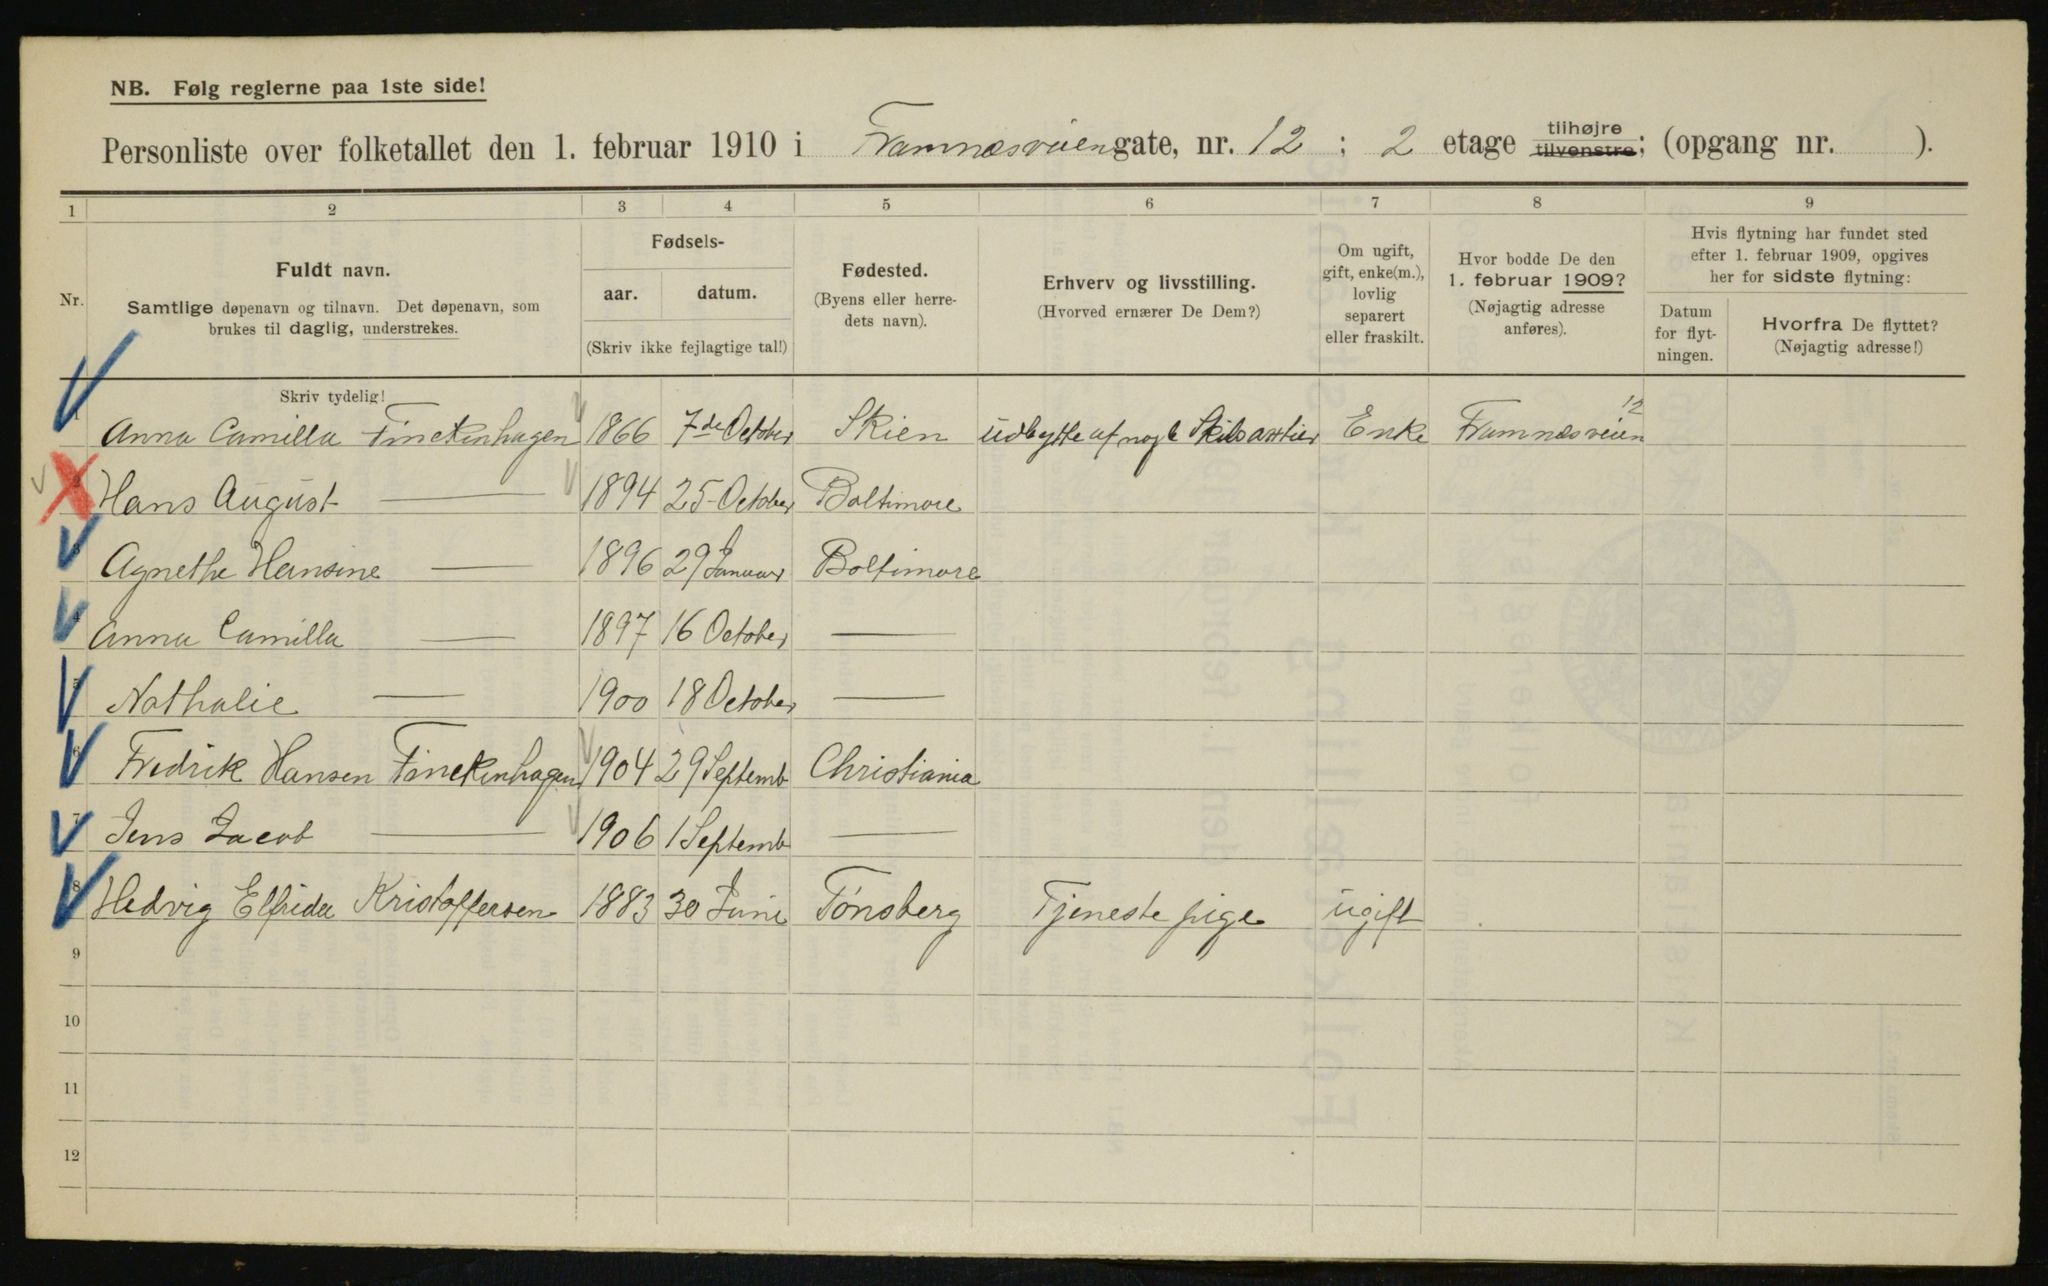 NB. Følg reglerne paa 1ste side!
Personliste over folketallet den 1. februar 1910 i Framnæsveien gate, nr. 12 ; 2 etage tilhøjre tilvenstre; (opgang nr. ).
1 2 3 4 5 6 7 8 9
Nr.
Fuldt navn.
Samtlige døpenavn og tilnavn. Det døpenavn, som
brukes til daglig, understrekes.
Skriv tydelig!
Fødsels-
aar. datum.
(Skriv ikke fejlagtige tal!)
Fødested.
(Byens eller herre-
dets navn).
Erhverv og livsstilling.
(Hvorved ernærer De Dem?)
Om ugift,
gift, enke(m.),
lovlig
separert
eller fraskilt.
Hvor bodde De den
1. februar 1909?
(Nøjagtig adresse
anføres).
Hvis flytning har fundet sted
efter 1. februar 1909, opgives
her for sidste flytning:
Datum
for flyt-
ningen.
Hvorfra De flyttet?
(Nøjagtig adresse!)
1 Anna Camilla Finckenhagen 1866 7de October Skien udbytte af nogle Skibsaktier Enke Framnæsveien 12
2 Hans August — 1894 25 October Baltimore
3 Agnethe Hansine — 1896 29 Januar Baltimore
4 Anna Camilla — 1897 16 October —
5 Nathalie — 1900 18 October —
6 Fredrik Hansen Finckenhagen 1904 29 Septemb Christiania
7 Jens Jacob — 1906 1 Septemb —
8 Hedvig Elfrida Kristoffersen 1883 30 Juni Tönsberg Tjeneste pige ugift
9
10
11
12